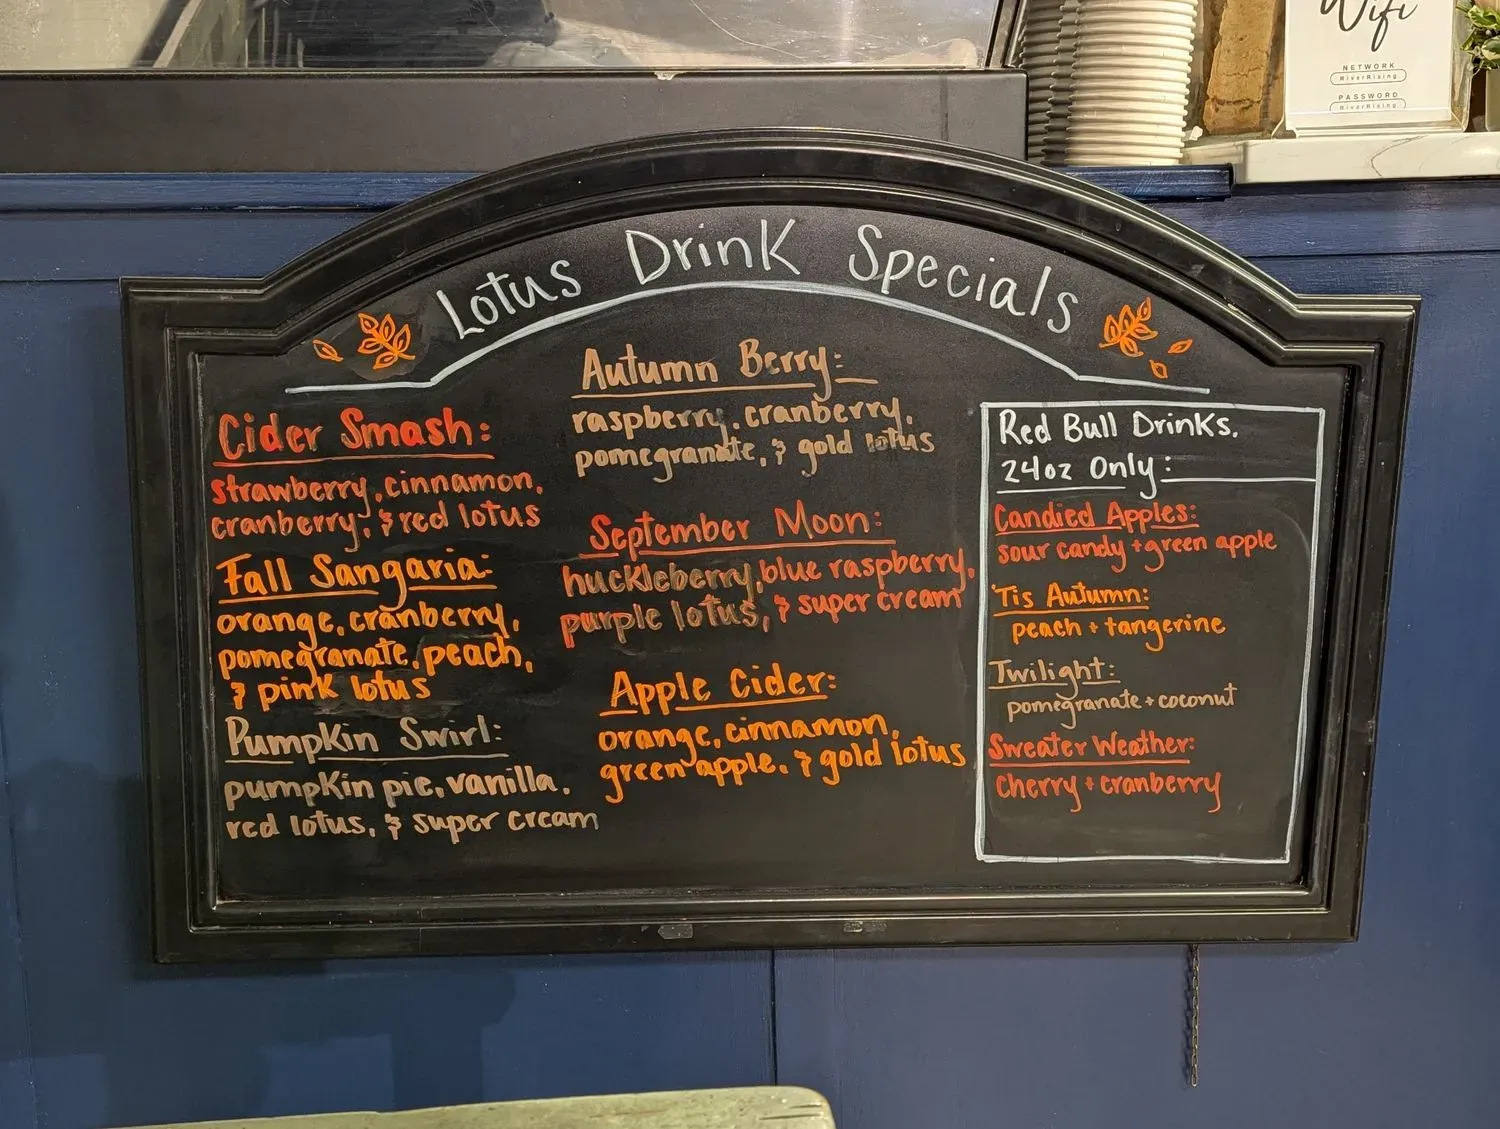 Wifi
NETWORK
RiverRising
PASSWORD
RiverRising
Lotus Drink Specials
Cider Smash:
strawberry, cinnamon,
cranberry, & red lotus
Fall Sangaria:
orange, cranberry,
pomegranate, peach,
& pink lotus
Pumpkin Swirl:
pumpkin pie, vanilla,
red lotus, & super cream
Autumn Berry:
raspberry, cranberry,
pomegranate, & gold lotus
September Moon:
huckleberry, blue raspberry,
purple lotus, & super cream
Apple Cider:
orange, cinnamon,
green apple, & gold lotus
Red Bull Drinks.
24oz Only:
Candied Apples:
sour candy + green apple
Tis Autumn:
peach + tangerine
Twilight:
pomegranate + coconut
Sweater Weather:
cherry + cranberry